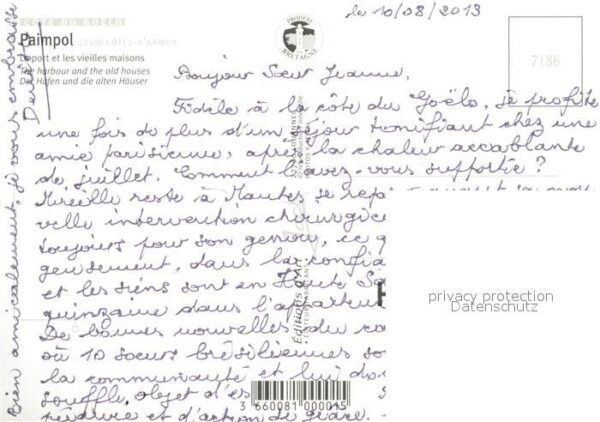 CÔTE DU GOËLO
Paimpol
22500 CÔTES-D'ARMOR
Le port et les vieilles maisons
The harbour and the old houses
Der Hafen und die alten Häuser
PRODUIT EN BRETAGNE
7186
le 10/08/2013
Bonjour Sœur Jeanne,
Fidèle à la côte du Goëlo, je profite
une fois de plus d'un séjour tonifiant chez une
amie parisienne, après la chaleur accablante
de juillet. Comment l'avez-vous supportée ?
Mireille reste à Nantes se
velle intervention
toujours pour son genou, ce
geusement, dans la
et les siens sont en Haute
quinzaine dans
De bonnes nouvelles du
où 10 sœurs brésiliennes
la communauté et lui
souffle, objet
et d'action de grâce.
Bien amicalement, je vous embrasse
Editions d'Art
3 660081 000015
privacy protection
Datenschutz